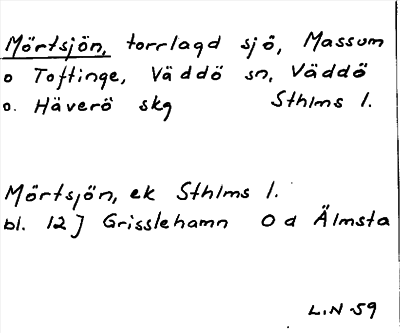 Mörtsjön, torrlagd sjö, Massum
o Toftinge, Väddö sn, Väddö
o. Häverö skg Sthlms l.
Mörtsjön, ek Sthlms l.
bl. 12J Grisslehamn O d Älmsta
L.N 59